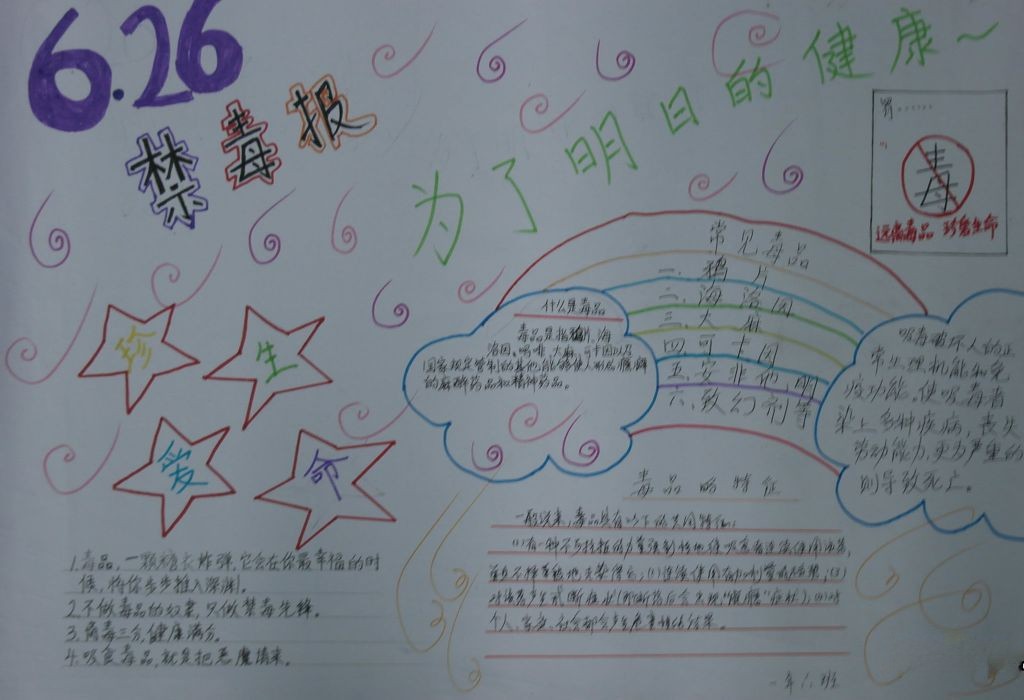 6.26
禁毒报
为了明日的健康~
胃……
毒
远离毒品 珍爱生命
珍
生
爱
命
什么是毒品
毒品是指鸦片、海
洛因、吗啡、大麻、可卡因以及
国家规定管制的其他能够使人形成瘾癖
的麻醉药品和精神药品。
常见毒品
一、鸦片
二、海洛因
三、大麻
四、可卡因
五、安非他明
六、致幻剂等
吸毒破坏人的正
常生理机能和免
疫功能。使吸毒者
染上多种疾病,丧失
劳动能力,更为严重的
则导致死亡。
毒品的特征
一般说来,毒品具有以下的共同特征:
(1)有一种不可抗拒的力量强制性地使吸食者连续使用该药,
并且不择手段地去获得它;(2)连续使用有加大剂量的趋势;(3)
对该药产生 断后会出现
个人、家庭、社会都会产生危害性结果。
1.毒品,一颗糖衣炸弹,它会在你最幸福的时
候,将你步步推入深渊。
2.不做毒品的奴隶,只做禁毒先锋。
3.离毒三分,健康满分。
4.吸食毒品,就是把恶魔请来。
六班